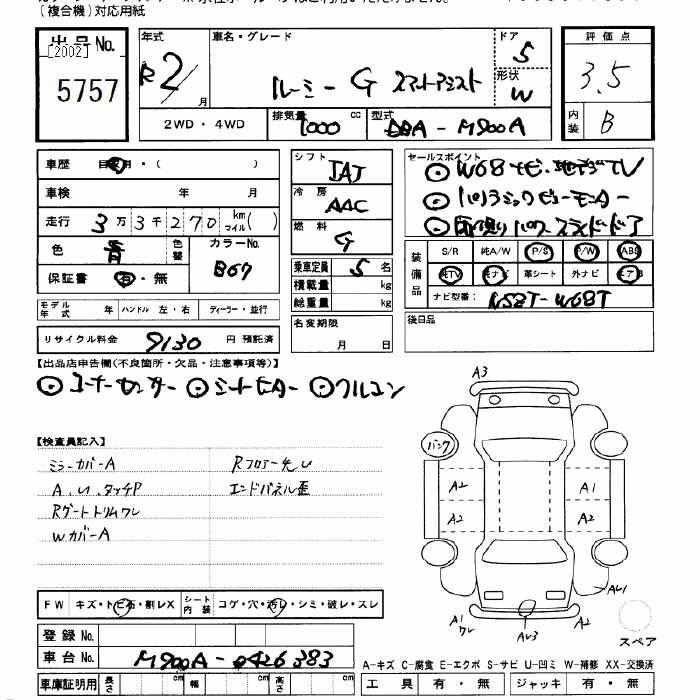 (複合機)対応用紙
出品No.
[2002]
5757
年式
R2/
月
車名・グレード
ルーミー G スマートアシスト
ドア
5
形状
W
評価点
3.5
内装
B
2WD・4WD
排気量
1000
cc
型式
DBA-M900A
車歴
・( )
車検 年 月
走行 3万3千270 km マイル( )
色 青 色替
カラーNo.
B67
保証書 有・無
モデル年式 年
ハンドル 左・右
ディーラー・並行
リサイクル料金 9130 円 預託済
シフト
IAT
冷房
AAC
燃料
G
乗車定員 5 名
積載量 kg
総重量 kg
名変期限
月 日
セールスポイント
W68ナビ・地デジTV
パノラミックビューモニター
両側パワースライドドア
装備品
S/R 純A/W P/S P/W ABS
純TV 純ナビ 革シート 外ナビ エアB
ナビ型番: NSZT-W68T
後日品
【出品店申告欄(不良箇所・欠品・注意事項等)】
コーナーセンサー シートヒーター クルコン
【検査員記入】
ミラーカバーA
A、U、タッチP
Rゲートトリムワレ
WカバーA
Rフロアー先U
エンドパネル歪
FW キズ・トビ石・割レX
シート内装 コゲ・穴・汚レ・シミ・破レ・スレ
登録No.
車台No. M900A-0426383
車庫証明用 長さ cm 幅 cm 高さ cm
A3
パンク
A2
A1
A2
A2
AU1
A1
ワレ
AU3
A2
スペア
A-キズ C-腐食 E-エクボ S-サビ U-凹ミ W-補修 XX-交換済
工具 有・無 ジャッキ 有・無